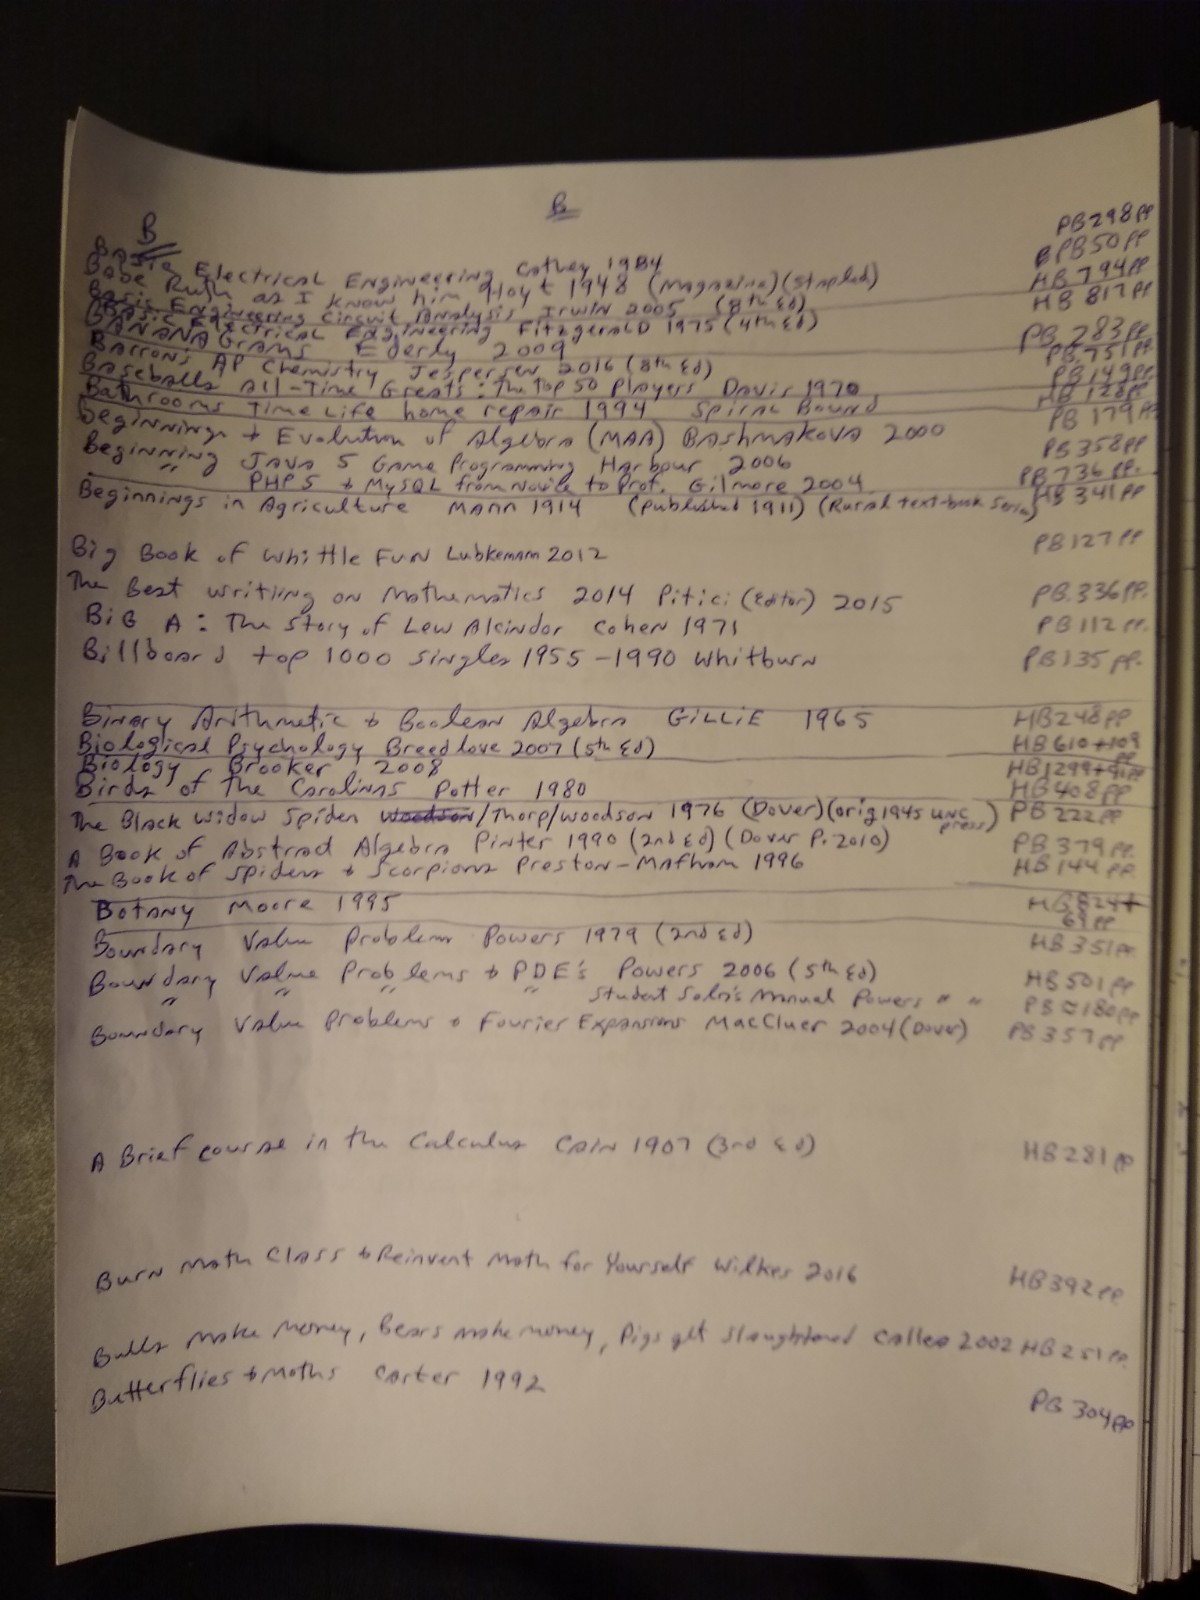 B
B
Basic Electrical Engineering Cathey 1984 PB298pp
Babe Ruth as I know him Hoyt 1948 (Magazine)(stapled) PB50pp
Basic Engineering Circuit Analysis Irwin 2005 (8th Ed) HB794pp
Basic Electrical Engineering Fitzgerald 1975 (4th Ed) HB 817pp
BANANAGrams Ederly 2009 PB 283pp
Barron's AP Chemistry Jespersen 2016 (8th Ed) PB.751pp
Baseballs All-Time Greats: The Top 50 Players Davis 1970 PB149pp.
Bathrooms Time Life home repair 1994 Spiral Bound HB 128pp
Beginnings & Evolution of Algebra (MAA) Bashmakova 2000 PB 179pp
Beginning JAVA 5 Game Programming Harbour 2006 PB358pp
" PHP5 & MySQL from Novice to Prof. Gilmore 2004 PB736 pp.
Beginnings in Agriculture Mann 1914 (Published 1911) (Rural text-book Series) HB341pp
Big Book of Whittle Fun Lubkemann 2012 PB127pp
The Best Writiing on Mathematics 2014 Pitici (Editor) 2015 PB.336pp.
BiG A: The Story of Lew Alcindor Cohen 1971 PB112pp.
Billboard top 1000 singles 1955-1990 Whitburn PB135pp.
Binary Arithmetic & Boolean Algebra GiLLiE 1965 HB248pp
Biological Psychology Breedlove 2007 (5th Ed) HB610+109 pp
Biology Brooker 2008 HB1299+91pp
Birds of the Carolinas Potter 1980 HB408pp
The Black Widow Spider Woodson/Thorp/Woodson 1976 (Dover)(orig 1945 UNC press) PB222pp
A Book of Abstract Algebra Pinter 1990 (2nd Ed) (Dover P. 2010) PB379pp.
The Book of Spiders & Scorpions Preston-Mafham 1996 HB144pp.
Botany Moore 1995 HB824+
69pp
Boundary Value Problems Powers 1979 (2nd Ed) HB351pp.
Boundary Value Problems & PDE's Powers 2006 (5th Ed) HB501pp
" " " " Student Soln's Manual Powers " " PB≈180pp
Boundary Value Problems & Fourier Expansions MacCluer 2004 (Dover) PB357pp
A Brief course in the Calculus Cain 1907 (3rd Ed) HB281pp
Burn Math Class & Reinvent Math for Yourself Wilkes 2016 HB392pp.
Bulls make Money, Bears make money, Pigs get slaughtered 2002 HB251pp.
Butterflies & Moths Carter 1992 PB304pp